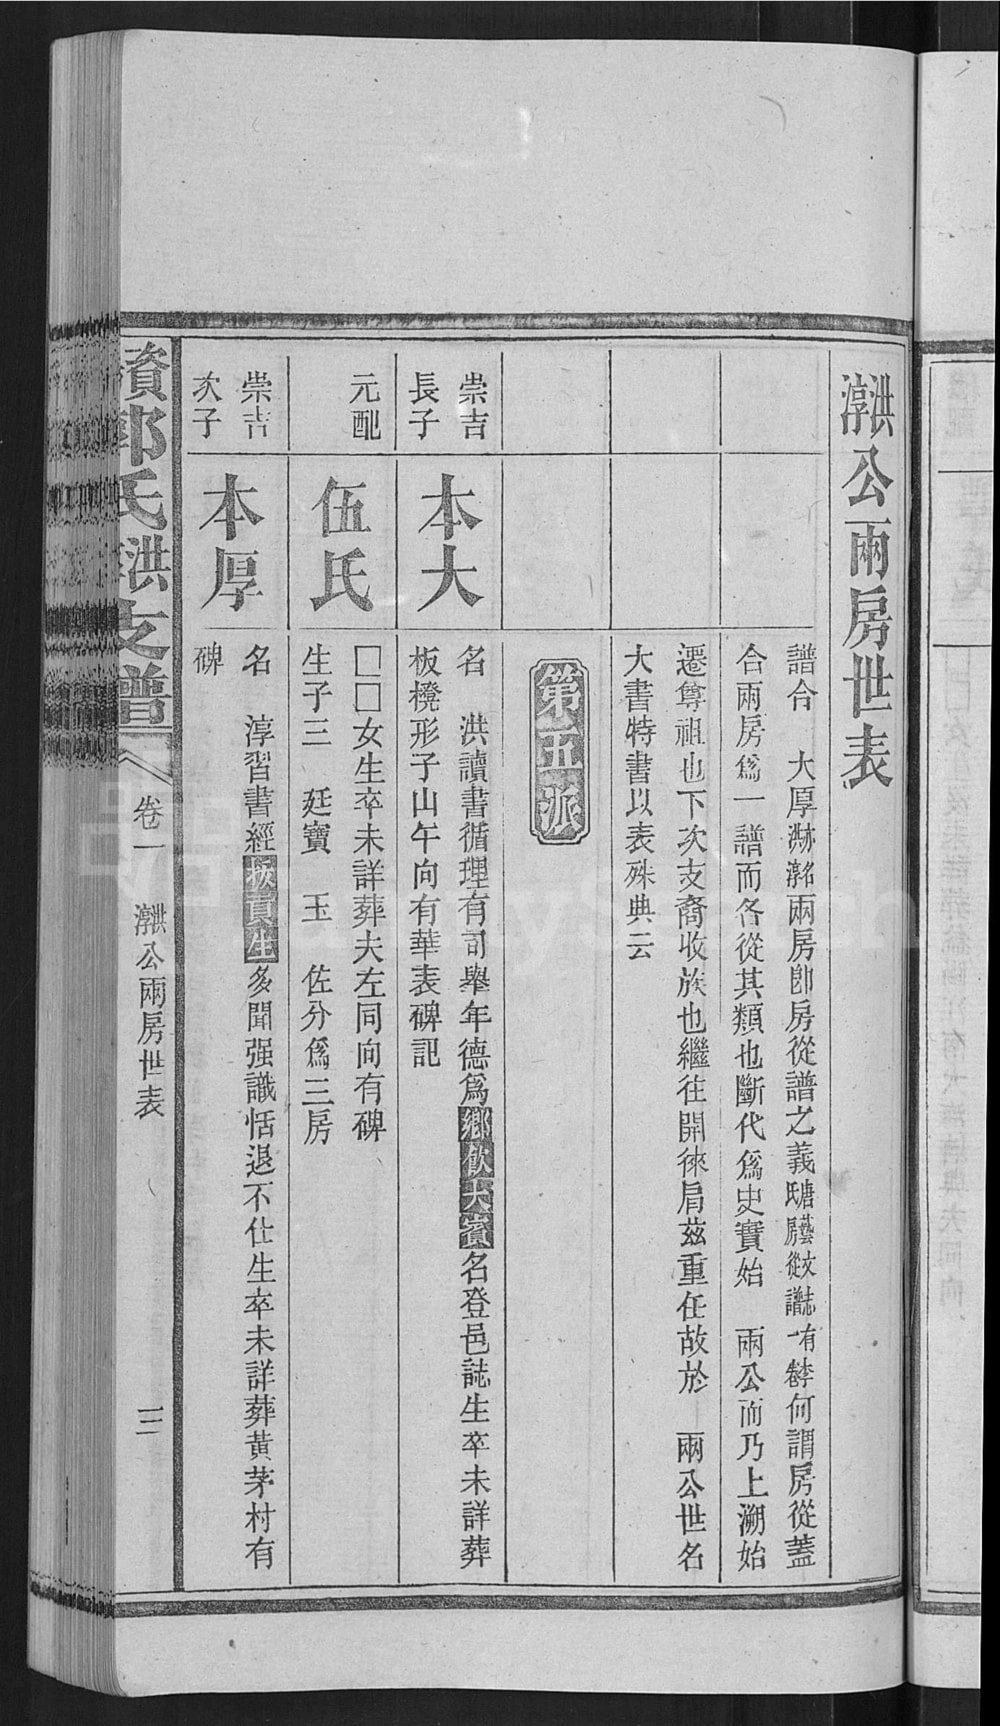 洪淳公兩房世表
譜合　大厚洪名淳名兩房卽房從譜之義唐藝文志有李氏房從譜一卷何謂房從蓋
合兩房爲一譜而各從其類也斷代爲史實始　兩公而乃上溯始
遷尊祖也下次支裔收族也繼往開徠肩茲重任故於　兩公世名
大書特書以表殊典云
第五派
崇吉
長子
本大
名　洪讀書循理有司舉年德爲鄉飲大賓名登邑誌生卒未詳葬
板櫈形子山午向有華表碑記
元配
伍氏
□□女生卒未詳葬夫左同向有碑
生子三　廷寶　玉　佐分爲三房
崇吉
次子
本厚
名　淳習書經拔貢生多聞强識恬退不仕生卒未詳葬黃茅村有
碑
氏洪支譜
卷一　洪淳公兩房世表　三